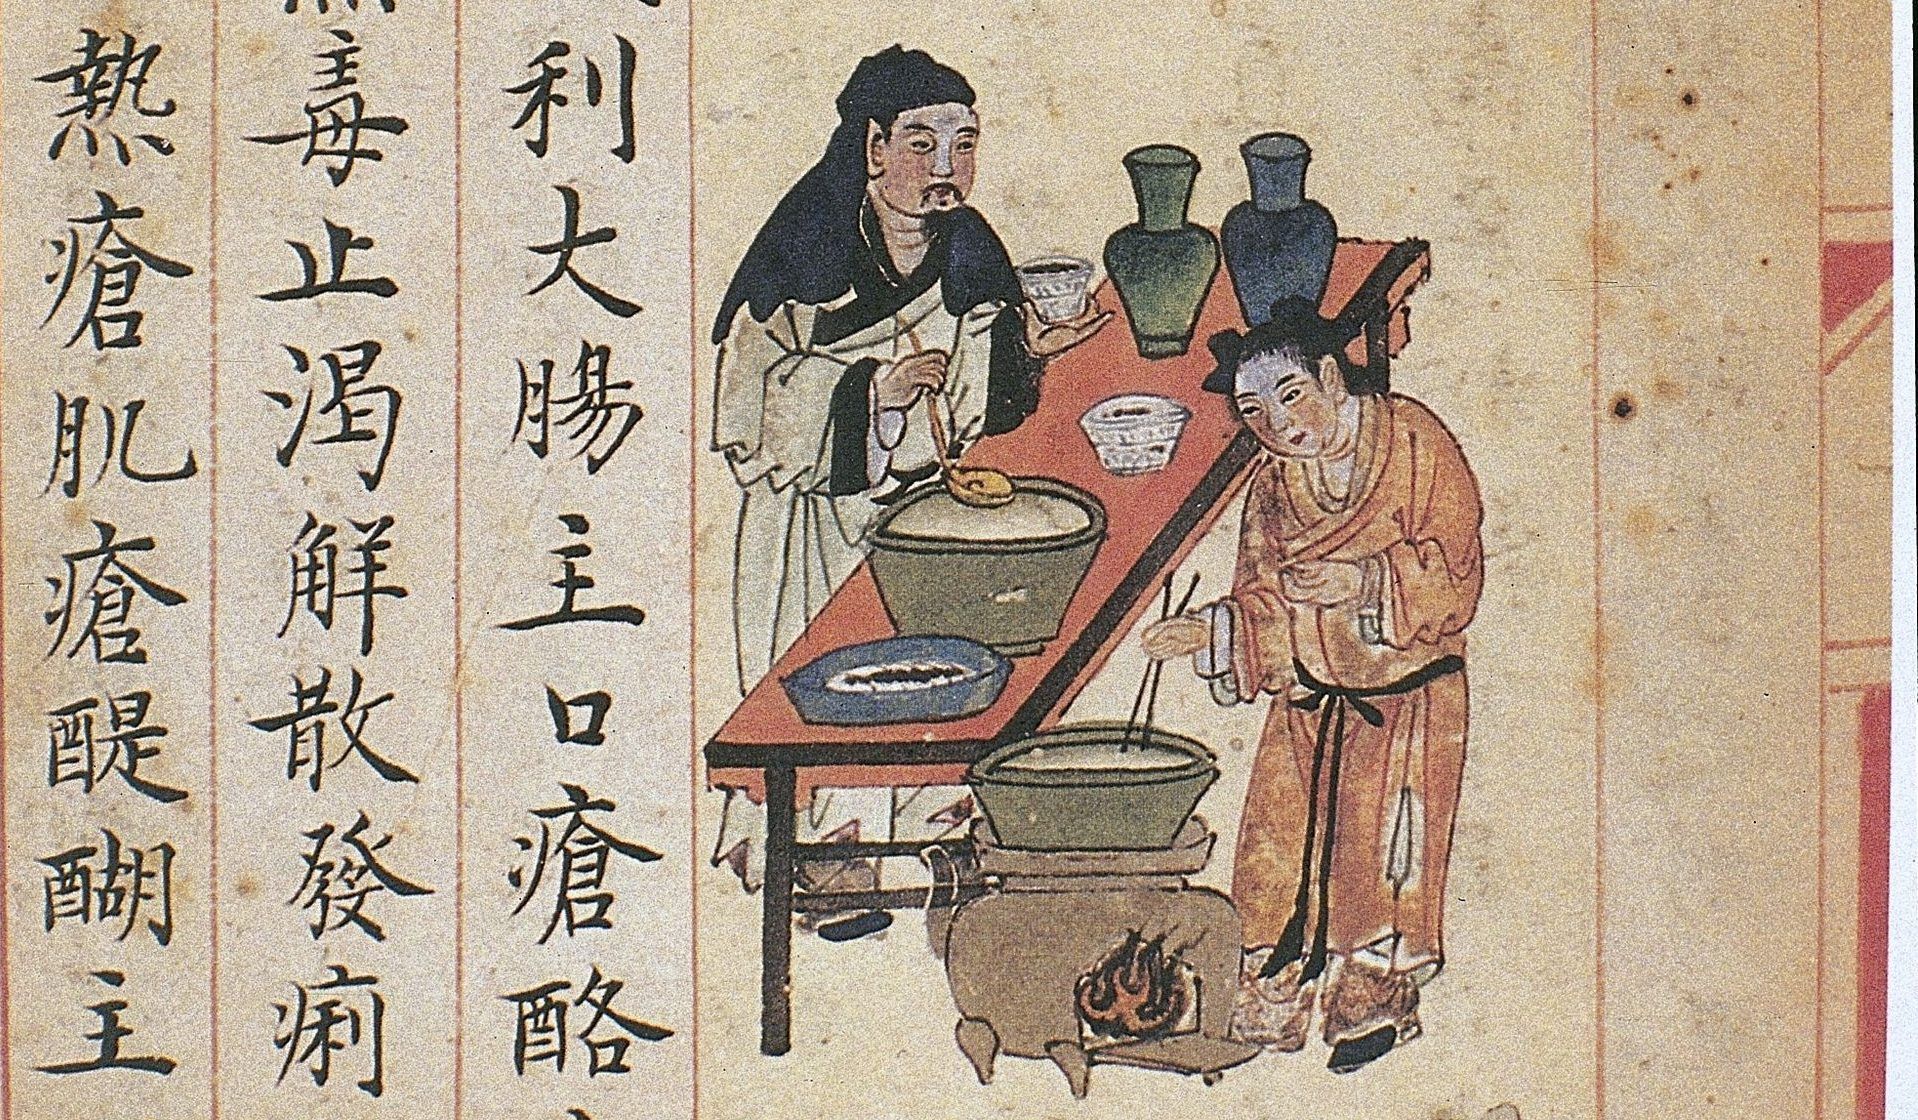 利大腸主口瘡酪
毒止渴解散發痢
熱瘡肌瘡醍醐主